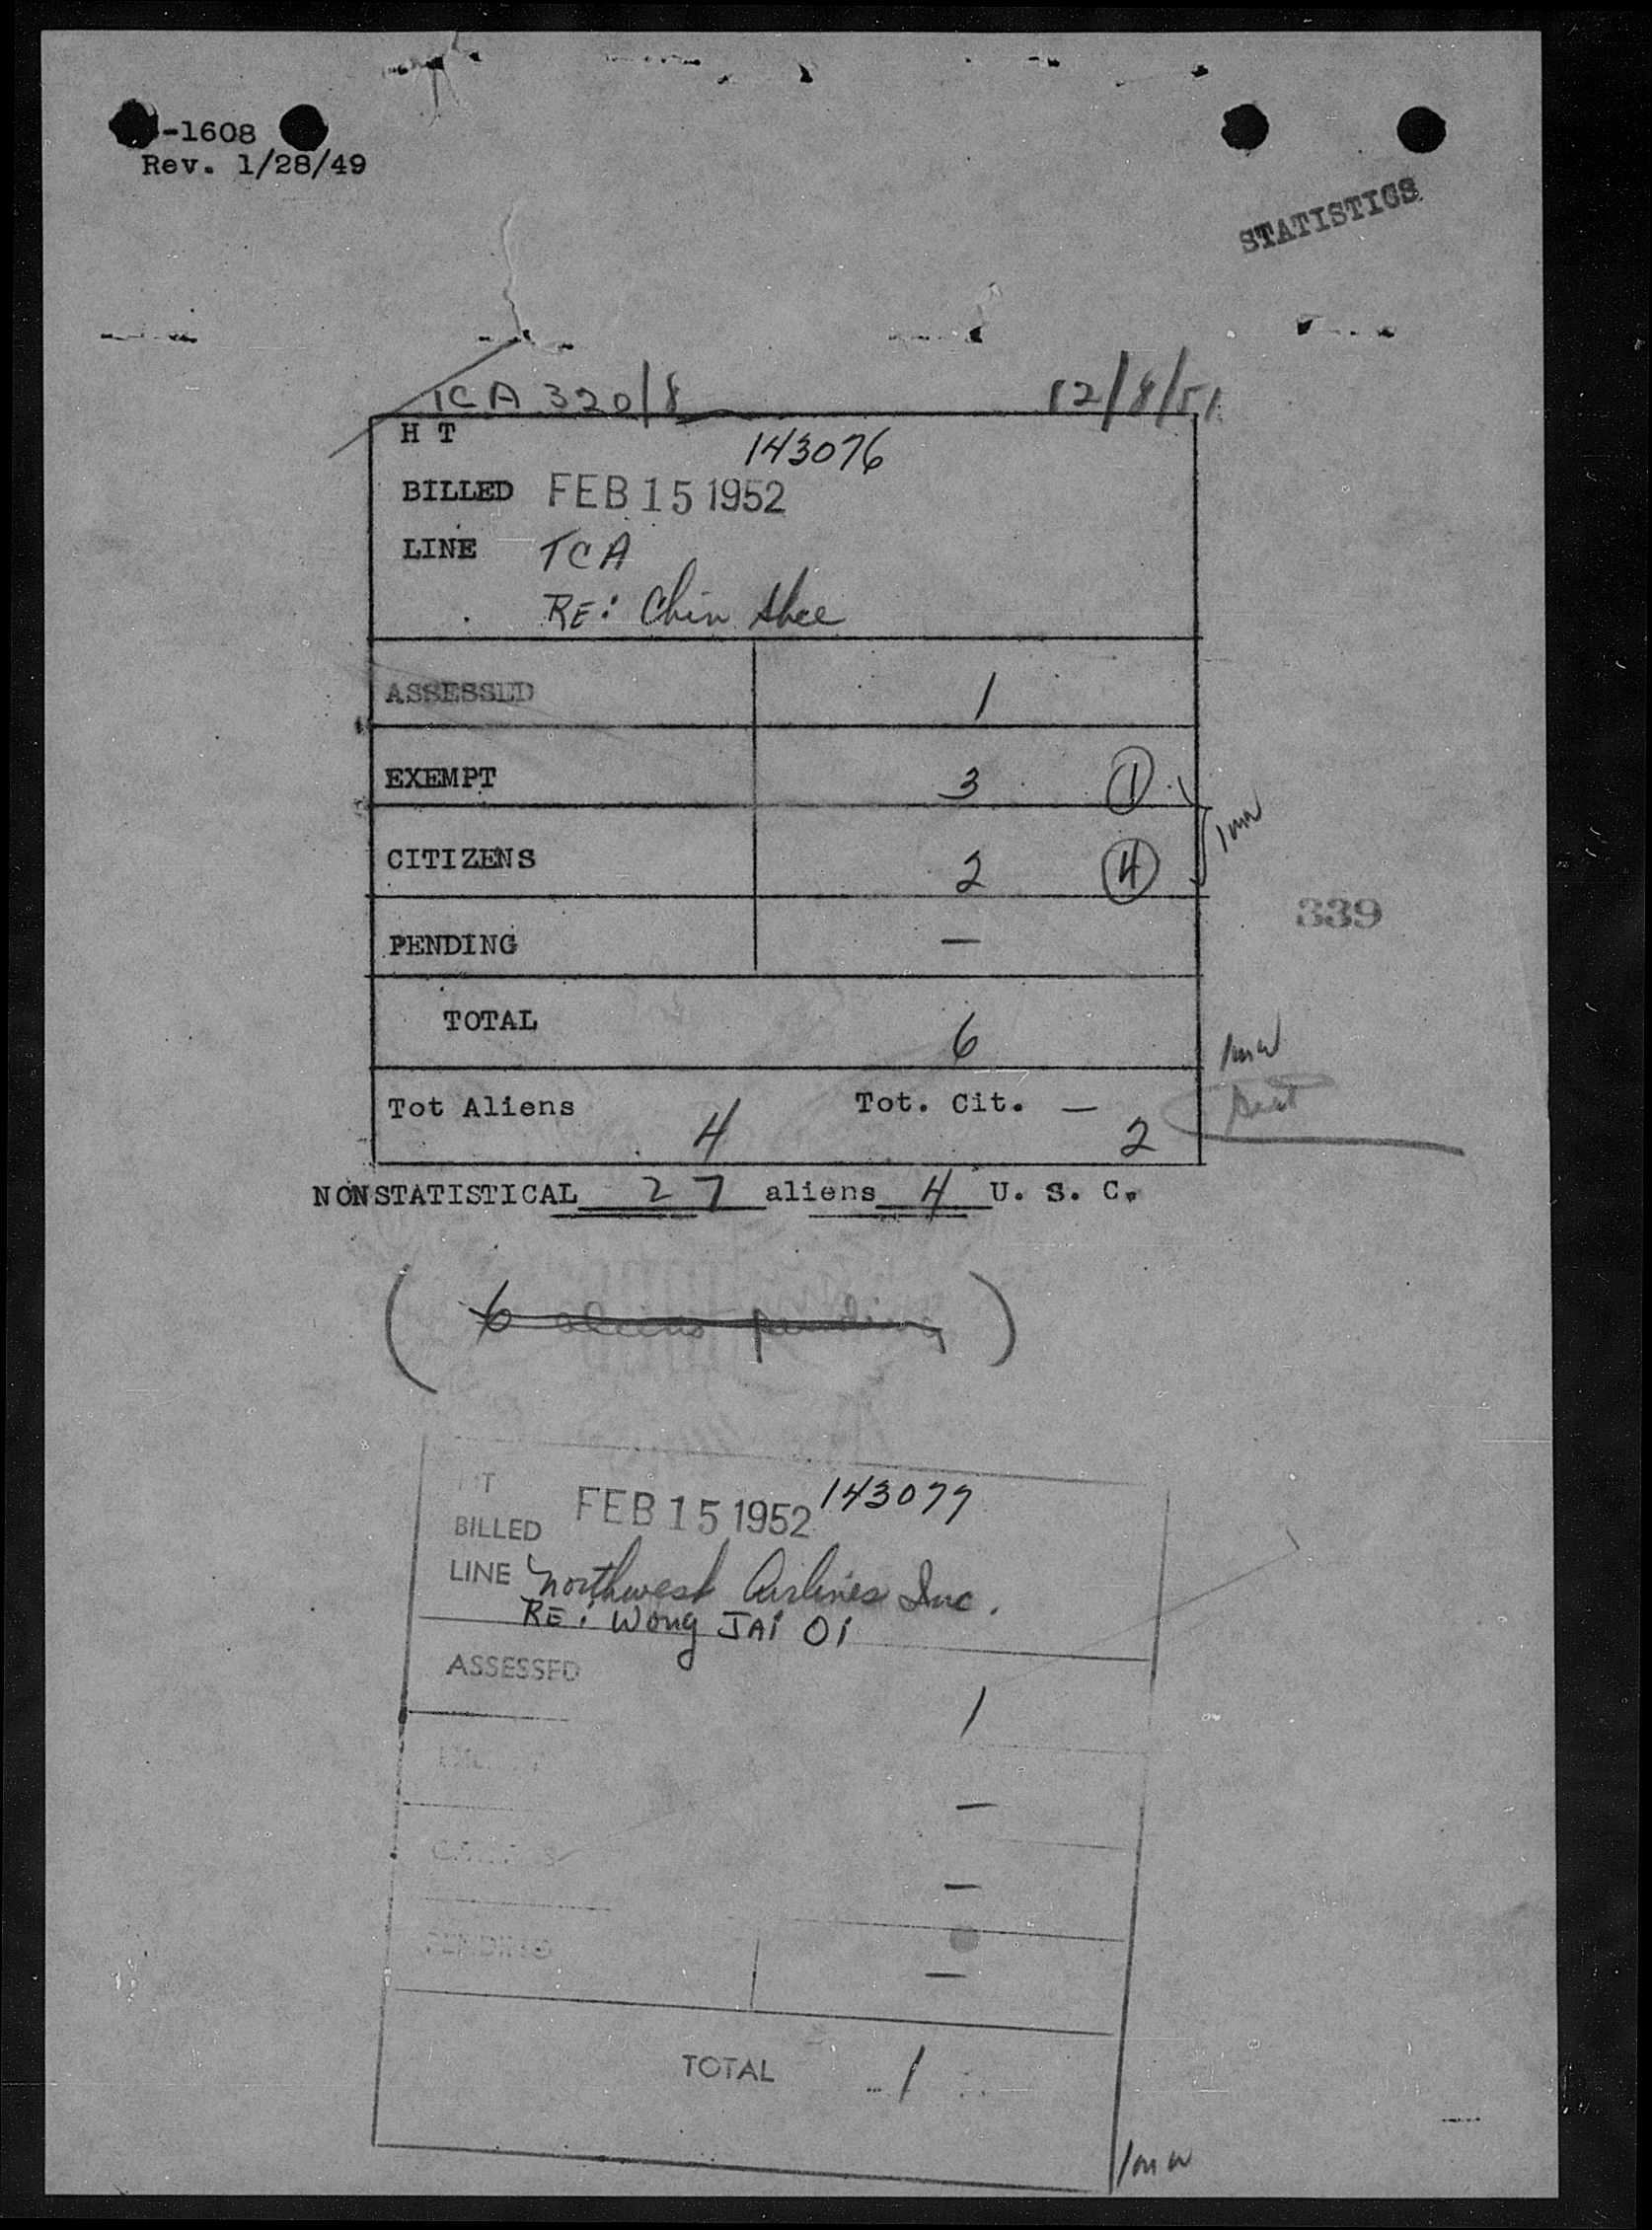 -1608
Rev. 1/28/49
STATISTICS
TCA 320/8 12/8/51
H T 143076
BILLED FEB 15 1952
LINE TCA
RE: Chin Shee
ASSESSED 1
EXEMPT 3 1
CITIZENS 2 4
339
PENDING —
TOTAL 6
Tot Aliens 4 Tot. Cit. — 2
NONSTATISTICAL 27 aliens 4 U. S. C.
( 6 aliens pending )
HT 143077
BILLED FEB 15 1952
LINE Northwest Airlines Inc.
RE: Wong JAi Oi
ASSESSED 1
—
—
PENDING —
TOTAL 1